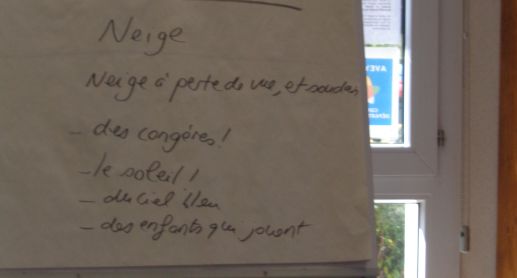 Neige
Neige à perte de vue, et soudain
- des congères !
- le soleil !
- du ciel bleu
- des enfants qui jouent
AVEY